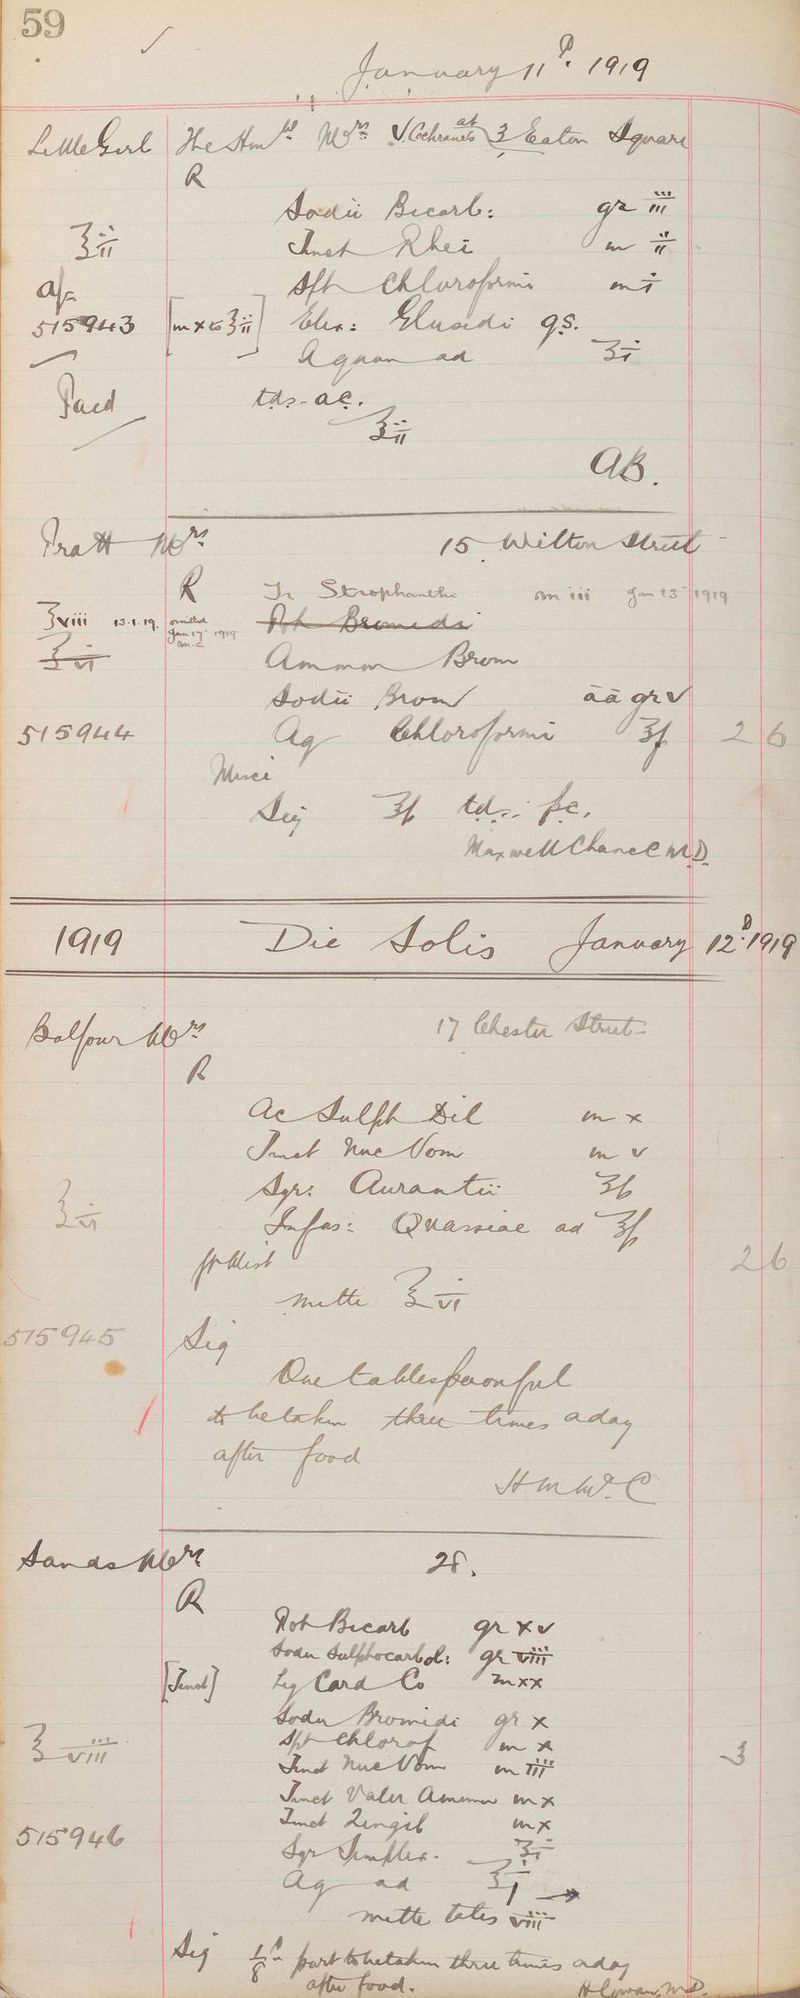 59
January 11th. 1919
Little Girl The Honble Mrs V Cochrane's at 3 Eaton Square
R
Sodii Bicarb: gr iii
℥ii Tinct Rhei m ii
Spt Chloroformi m i
515943 [m x to ℥ii] Elix: Glusidi q.s.
Aquam ad ʒi
Paed t.d.s. a.c.
℥ii
AB.
Pratt Mrs 15 Wilton Street
R Tr Strophanthi m iii Jan 13 1919
℥viii 13.1.19. omitted Jan 17 1919 Pot Bromidi
℥vi Ammon Brom
Sodii Brom āā gr v
515944 Aq Chloroformi ℥ß 2 6
Misce
Sig ℥ß t.d.s. p.c.
Maxwell Chance M.D.
1919 Die Solis January 12th. 1919
Balfour Mrs 17 Chester Street
R
Ac Sulph Dil m x
Tinct Nuc Vom m v
Syr: Aurantii ʒß
℥vi Infus: Quassiae ad ℥ß
ft Mist 2 6
mitte ℥vi
515945 Sig
One tablespoonful
to be taken three times a day
after food
H M McC
Sands Mrs 28.
R
Pot Bicarb gr xv
Sodii Sulphocarbol: gr viii
[Tinct] Liq Card Co m xx
Sodii Bromidi gr x
℥viii Spt Chlorof m x 3
Tinct Nuc Vom m iii
Tinct Valer Ammon m x
515946 Tinct Zingib m x
Syr Simplex. ʒi
Aq ad ℥i →
mitte tales viii
Sig 1/8th part to be taken three times a day
after food. H Cowan, M.D.